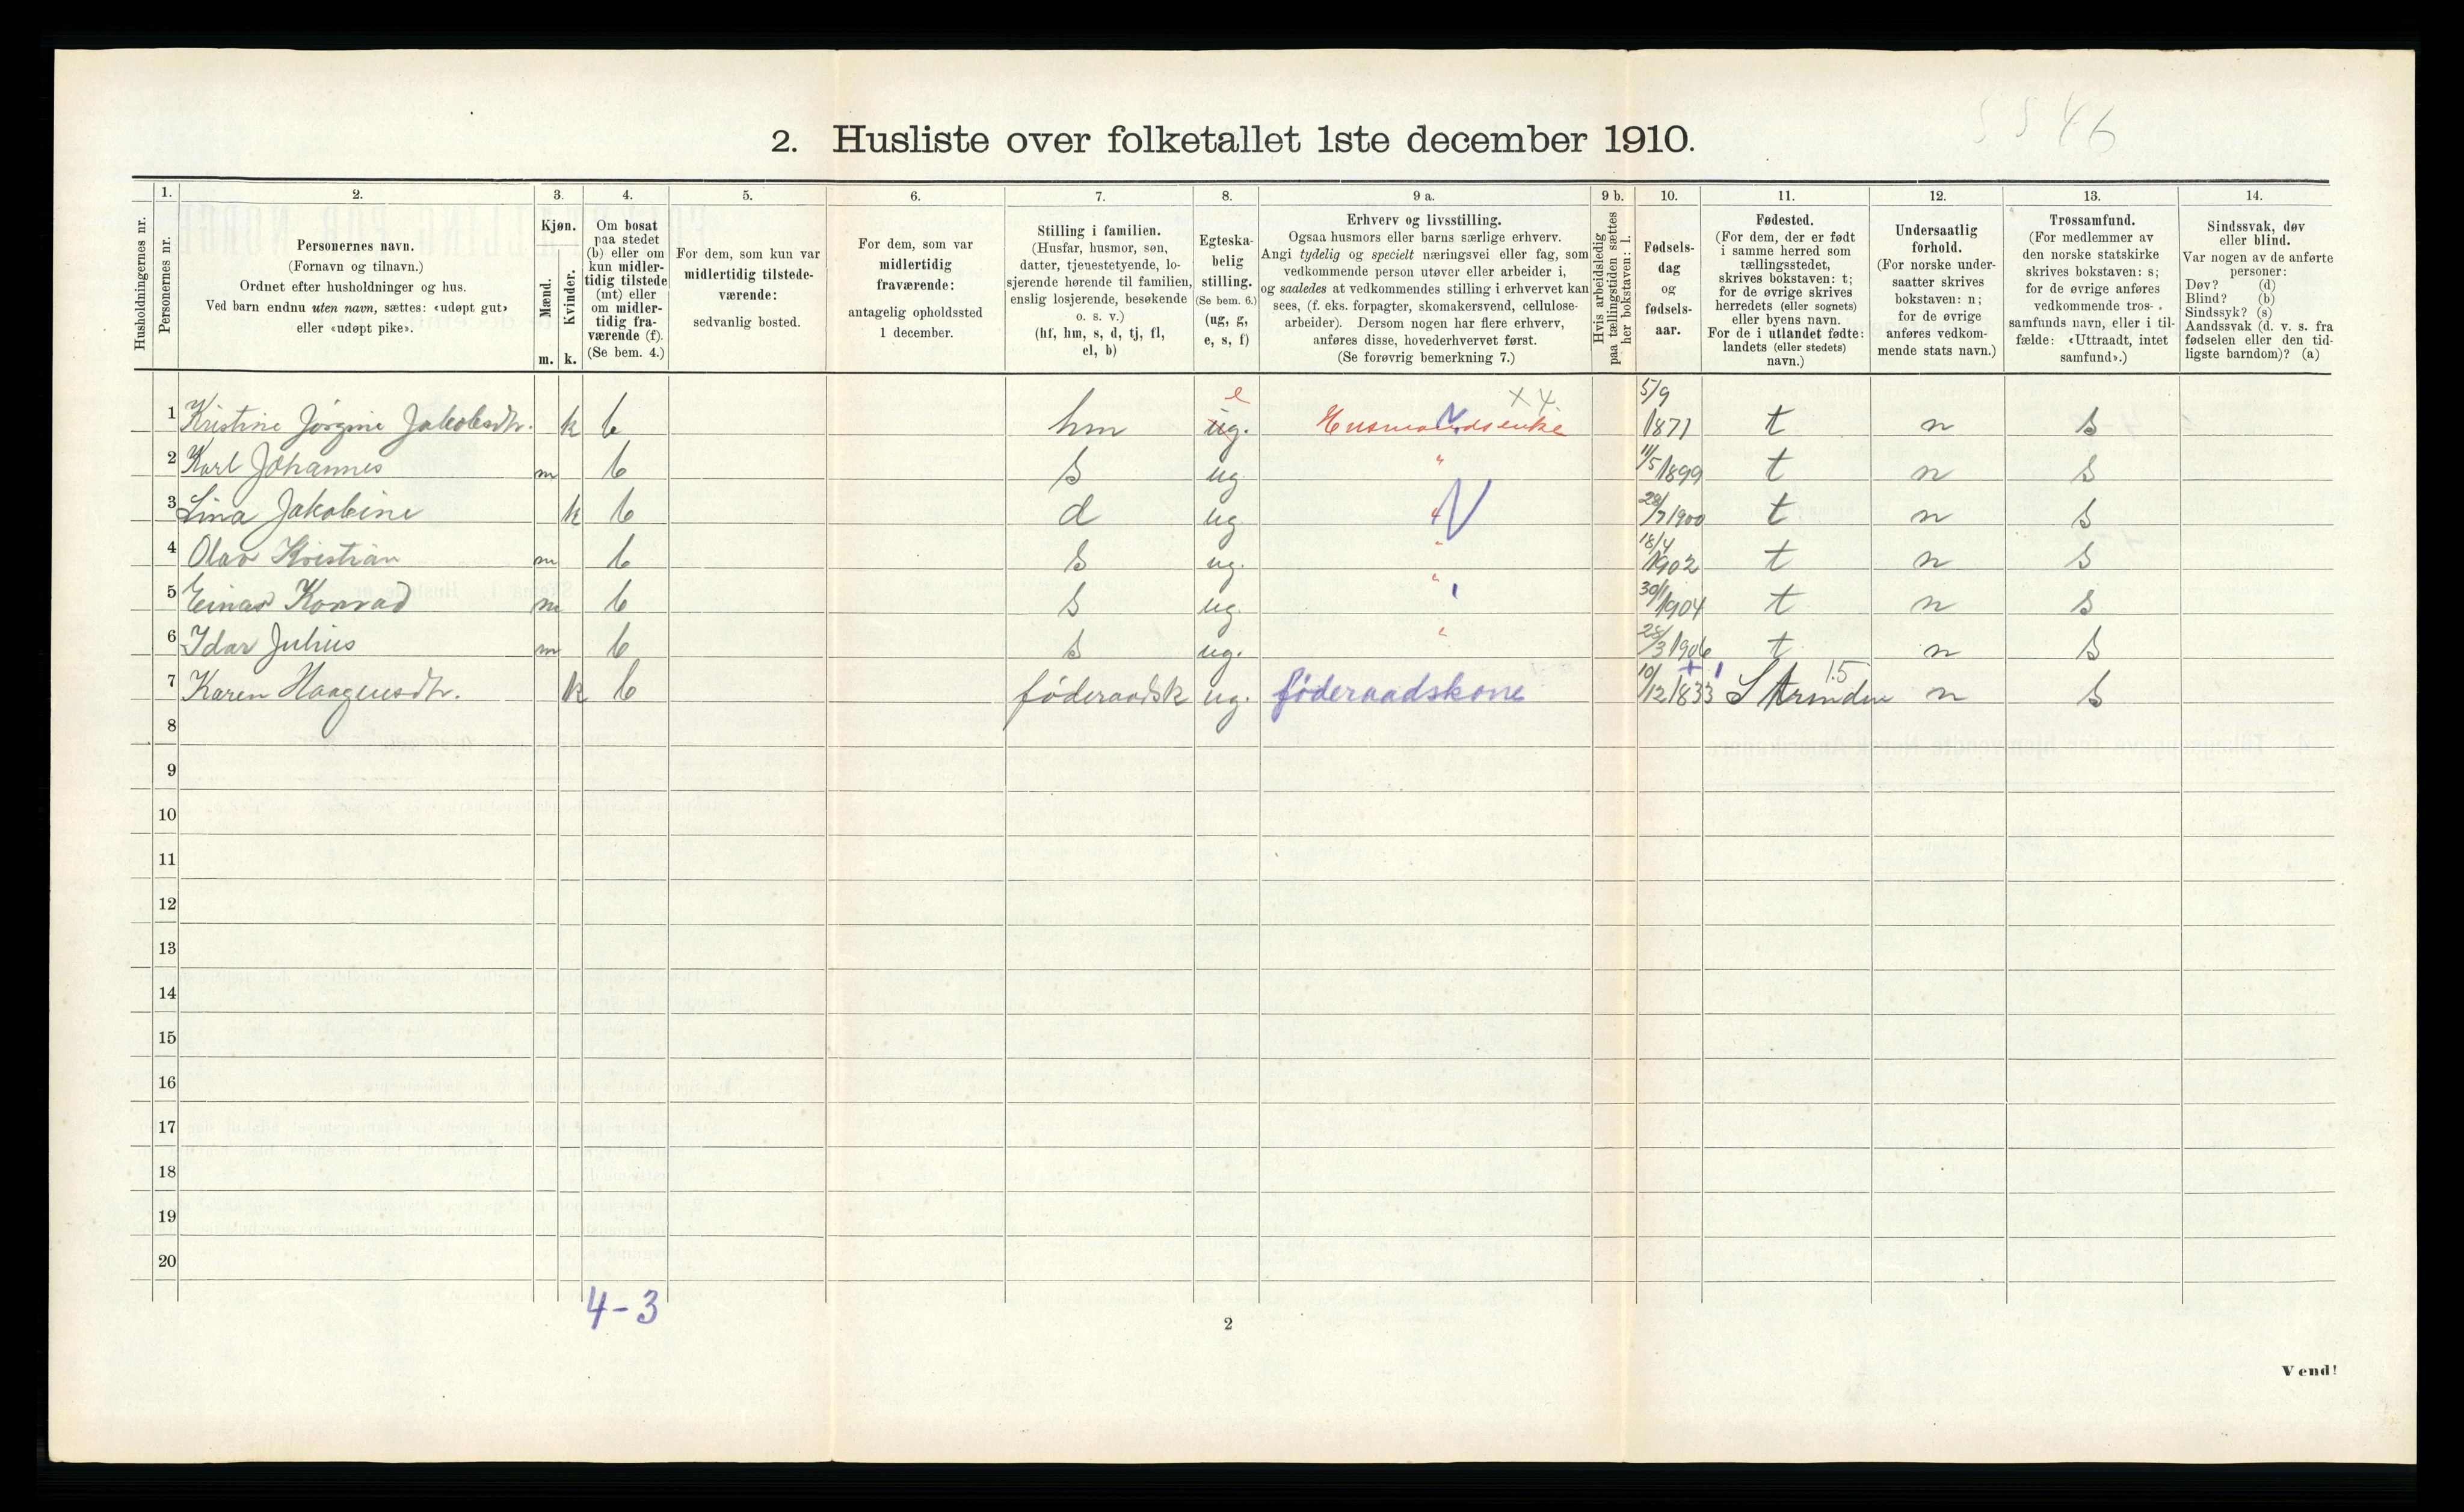 5546
2. Husliste over folketallet 1ste december 1910.
Husholdningernes nr.
1.
Personernes nr.
2.
Personernes navn.
(Fornavn og tilnavn.)
Ordnet efter husholdninger og hus.
Ved barn endnu uten navn, sættes: «udøpt gut»
eller «udøpt pike».
3.
Kjøn.
Mænd.
Kvinder.
m. k.
4.
Om bosat
paa stedet
(b) eller om
kun midler-
tidig tilstede
(mt) eller
om midler-
tidig fra-
værende (f).
(Se bem. 4.)
5.
For dem, som kun var
midlertidig tilstede-
værende:
sedvanlig bosted.
6.
For dem, som var
midlertidig
fraværende:
antagelig opholdssted
1 december.
7.
Stilling i familien.
(Husfar, husmor, søn,
datter, tjenestetyende, lo-
sjerende hørende til familien,
enslig losjerende, besøkende
o. s. v.)
(hf, hm, s, d, tj, fl,
el, b)
8.
Egteska-
belig
stilling.
(Se bem. 6.)
(ug, g,
e, s, f)
9 a.
Erhverv og livsstilling.
Ogsaa husmors eller barns særlige erhverv.
Angi tydelig og specielt næringsvei eller fag, som
vedkommende person utøver eller arbeider i,
og saaledes at vedkommendes stilling i erhvervet kan
sees, (f. eks. forpagter, skomakersvend, cellulose-
arbeider). Dersom nogen har flere erhverv,
anføres disse, hovederhvervet først.
(Se forøvrig bemerkning 7.)
9 b.
Hvis arbeidsledig
paa tællingstiden sættes
her bokstaven: l.
10.
Fødsels-
dag
og
fødsels-
aar.
11.
Fødested.
(For dem, der er født
i samme herred som
tællingsstedet,
skrives bokstaven: t;
for de øvrige skrives
herredets (eller sognets)
eller byens navn.
For de i utlandet fødte:
landets (eller stedets)
navn.)
12.
Undersaatlig
forhold.
(For norske under-
saatter skrives
bokstaven: n;
for de øvrige
anføres vedkom-
mende stats navn.)
13.
Trossamfund.
(For medlemmer av
den norske statskirke
skrives bokstaven: s;
for de øvrige anføres
vedkommende tros-
samfunds navn, eller i til-
fælde: «Uttraadt, intet
samfund».)
14.
Sindssvak, døv
eller blind.
Var nogen av de anførte
personer:
Døv? (d)
Blind? (b)
Sindssyk? (s)
Aandssvak (d. v. s. fra
fødselen eller den tid-
ligste barndom)? (a)
1 Kristine Jörgine Jakobsdtr. k b hm ug. e Husmandsenke X 4. 5/9 1877 t n s
2 Karl Johannes m b s ug " 11/5 1899 t n s
3 Lina Jakobine k b d ug " 28/7 1900 t n s
4 Olav Kristian m b s ug. " 18/4 1902 t n s
5 Einar Konrad m b s ug. " 30/1 1904 t n s
6 Idar Julius m b s ug. " 28/3 1906 t n s
7 Karen Haagensdtr. k b föderaadsk ug. föderaadskone 10/12 1833 Strinden 15 n s
8
9
10
11
12
13
14
15
16
17
18
19
20
4-3
2
Vend!